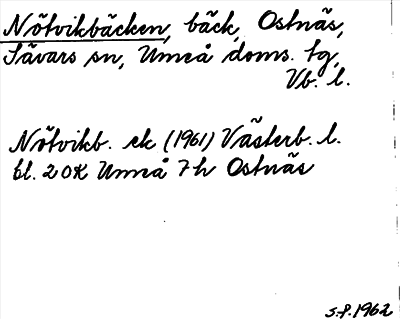 Nötvikbäcken, bäck, Ostnäs,
Sävars sn, Umeå doms. tg,
Vb. l.
Nötvikb. ek (1961) Västerb. l.
bl. 20K Umeå 7h Ostnäs
S.P. 1962